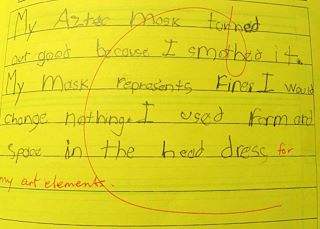 My Aztec Mask turned
out good because I smothed it.
My Mask represents Fire. I would
change nothing. I used form and
space in the head dress for
my art elements.